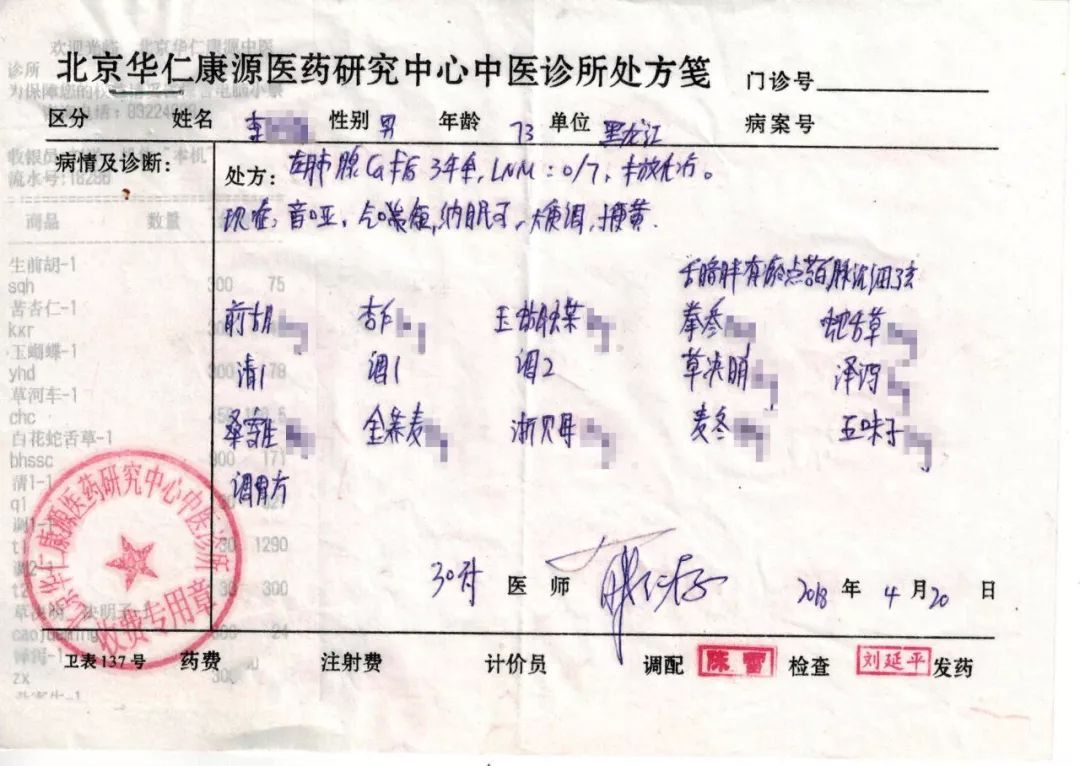 北京华仁康源医药研究中心中医诊所处方笺 门诊号
区分 姓名 李 性别 男 年龄 73 单位 黑龙江 病案号
病情及诊断:
处方: 左肺腺Ca术后3年余,LNM:0/7,未放化疗。
现症:音哑,气喘短,纳眠可,大便调,小便黄.
舌暗胖有瘀点苔白脉沉细弦
前胡 杏仁 玉蝴蝶 拳参 蛇舌草
清1 调1 调2 草决明 泽泻
桑寄生 金荞麦 浙贝母 麦冬 五味子
调胃方
30付 医师 2018年4月20日
卫表137号 药费 注射费 计价员 调配 陈雷 检查 刘延平 发药
北京华仁康源医药研究中心中医诊所
收费专用章
欢迎光临 北京华仁康源中医
诊所
为保障您的
收银员 本机
流水号:18286
商品 数量
生前胡-1
sqh 300 75
苦杏仁-1
kxr
玉蝴蝶-1
yhd 300 178
草河车-1
chc
白花蛇舌草-1
bhssc 300 171
清1-1
q1
调1-1
t1 30 1290
调2-1
t2 30 300
草决明 决明子-1
caojueming 300 24
泽泻-1
zx 300